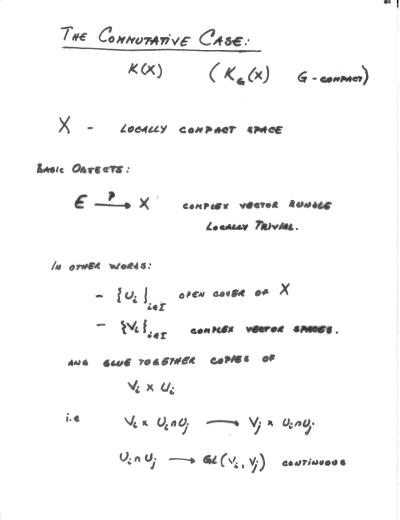 THE COMMUTATIVE CASE:
K(X) (K_G(X) G-COMPACT)
X - LOCALLY COMPACT SPACE
BASIC OBJECTS:
E →^p X COMPLEX VECTOR BUNDLE
LOCALLY TRIVIAL.
IN OTHER WORDS:
- {U_i}_{i∈I} OPEN COVER OF X
- {V_i}_{i∈I} COMPLEX VECTOR SPACES.
AND GLUE TOGETHER COPIES OF
V_i × U_i
i.e V_i × U_i∩U_j → V_j × U_i∩U_j
U_i∩U_j → GL(V_i, V_j) CONTINUOUS